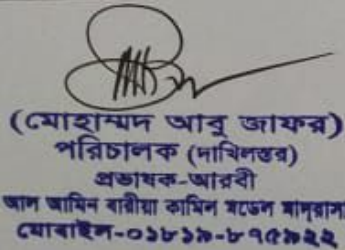 (মোহাম্মদ আবু জাফর)
পরিচালক (দাখিলস্তর)
প্রভাষক-আরবী
আল আমিন বারীয়া কামিল মডেল মাদ্রাসা
মোবাইল-০১৮১৯-৮৭৫৯২২